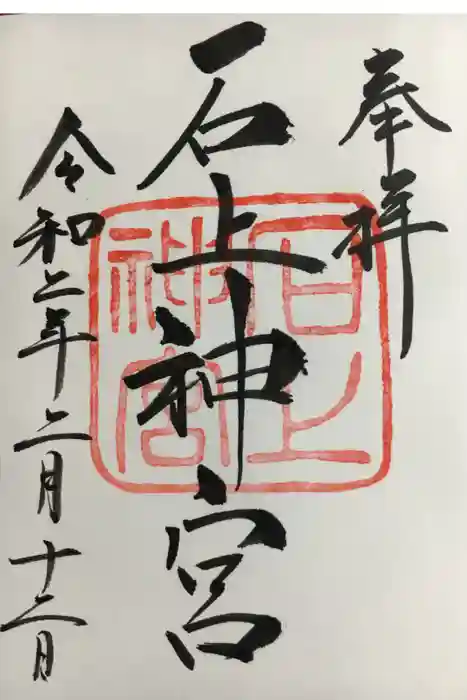 奉拝
石上神宮
令和二年二月十二日
石上
神宮